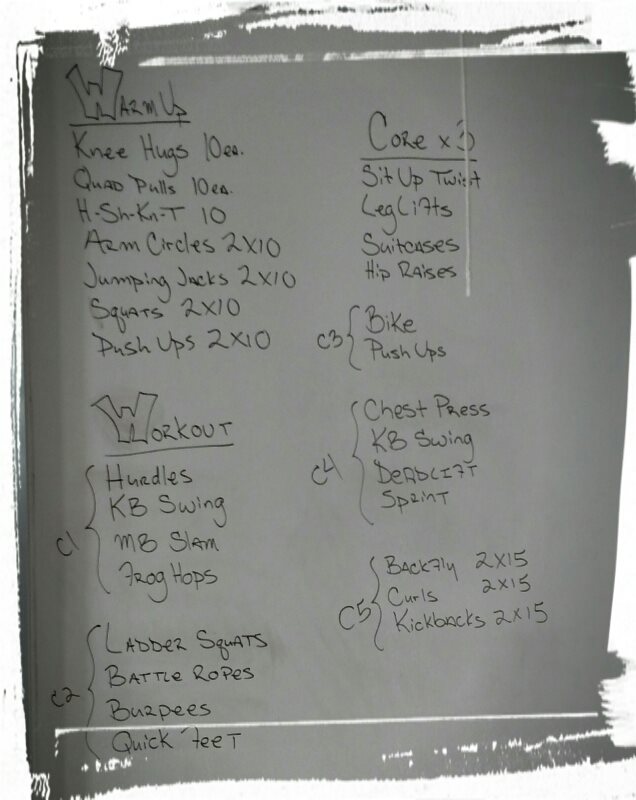 Warm Up
Knee Hugs 10ea.
Quad Pulls 10ea.
H-Sh-Kn-T 10
Arm Circles 2x10
Jumping Jacks 2x10
Squats 2x10
Push Ups 2x10
Workout
C1
Hurdles
KB Swing
MB Slam
Frog Hops
C2
Ladder Squats
Battle Ropes
Burpees
Quick Feet
Core x 3
Sit Up Twist
Leg Lifts
Suitcases
Hip Raises
C3
Bike
Push Ups
C4
Chest Press
KB Swing
Deadlift
Sprint
C5
Backfly 2x15
Curls 2x15
Kickbacks 2x15